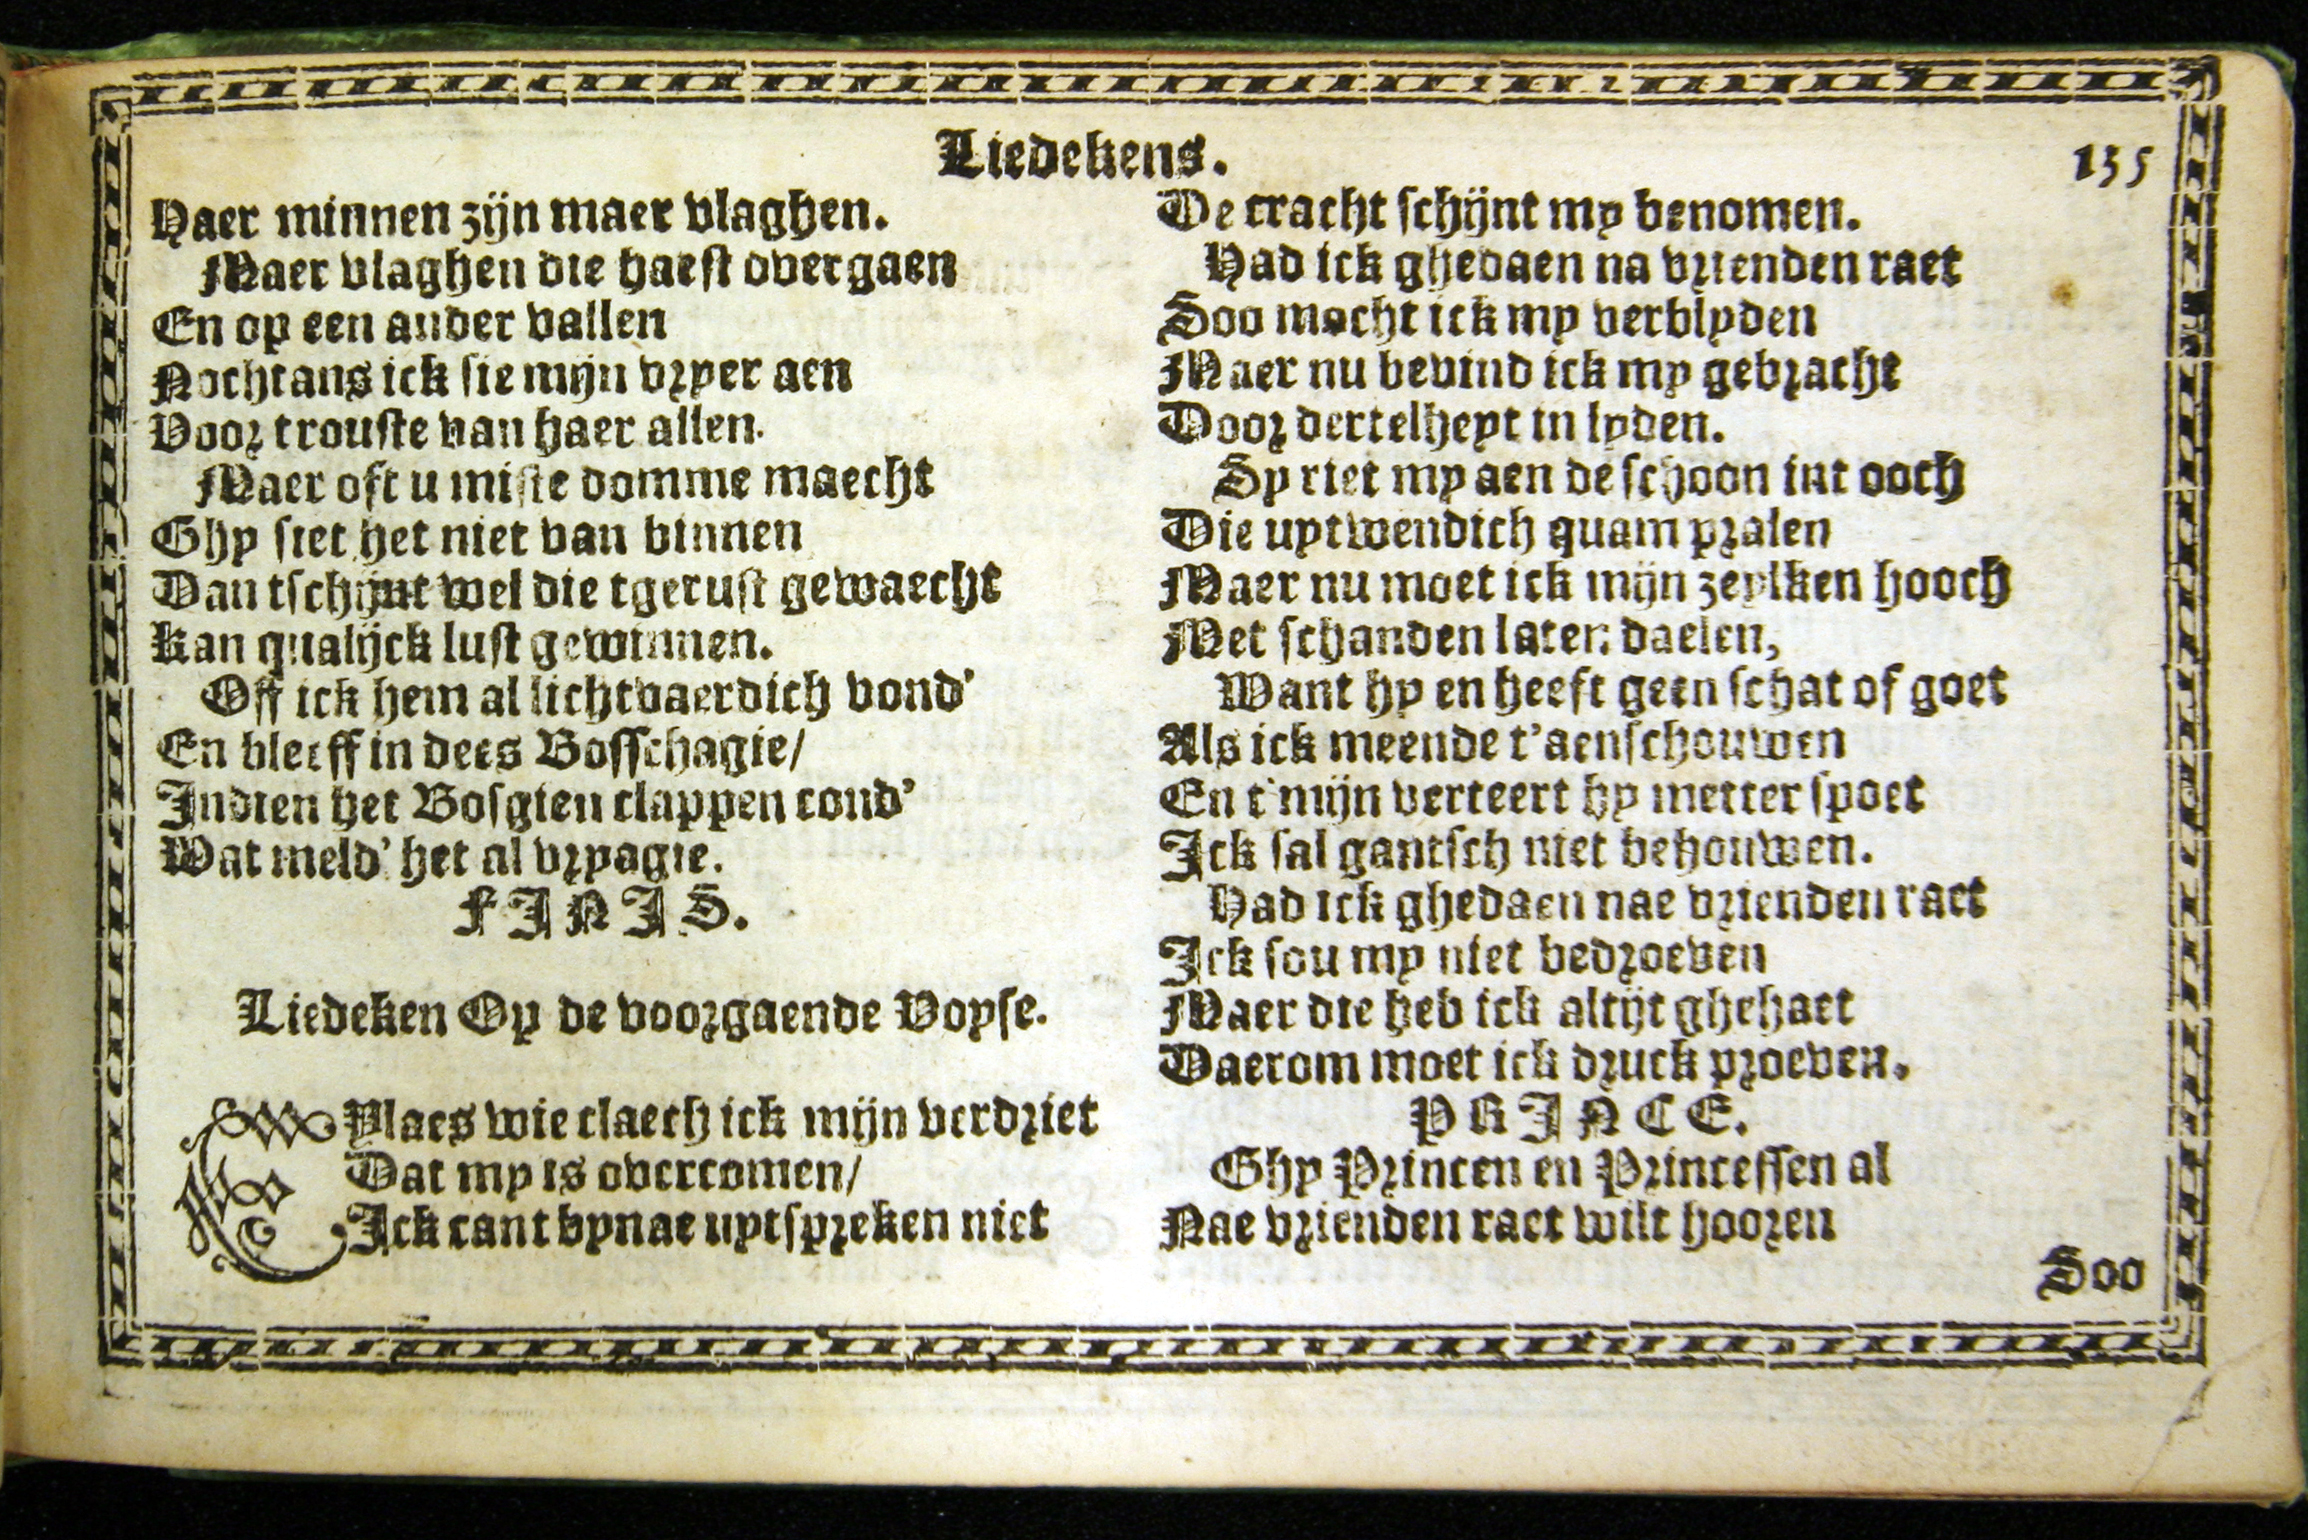 Liedekens.
135
Haer minnen zijn maer vlaghen.
Maer vlaghen die haest overgaen
En op een ander vallen
Nochtans ick sie mijn vryer aen
Voor trouste van haer allen.
Maer oft u miste domme maecht
Ghy siet het niet van binnen
Dan tschijnt wel die tgerust gewaecht
Kan qualijck lust gewinnen.
Off ick hem al lichtvaerdich vond'
En bleeff in dees Bosschagie/
Indien het Bosgien clappen cond'
Wat meld' het al vryagie.
FINIS.
Liedeken Op de voorgaende Voyse.
Eylaes wie claech ick mijn verdriet
Dat my is overcomen/
Ick cant bynae uytspreken niet
De cracht schijnt my benomen.
Had ick ghedaen na vrienden raet
Soo mocht ick my verblyden
Maer nu bevind ick my gebracht
Door dertelheyt in lyden.
Sy riet my aen de schoon int ooch
Die uytwendich quam pralen
Maer nu moet ick mijn zeylken hooch
Met schanden laten daelen,
Want hy en heeft geen schat of goet
Als ick meende t'aenschouwen
En t'mijn verteert hy metter spoet
Ick sal gantsch niet behouwen.
Had ick ghedaen nae vrienden raet
Ick sou my niet bedroeven
Maer die heb ick altijt ghehaet
Daerom moet ick druck proeven.
PRINCE.
Ghy Princen en Princessen al
Nae vrienden raet wilt hooren
Soo